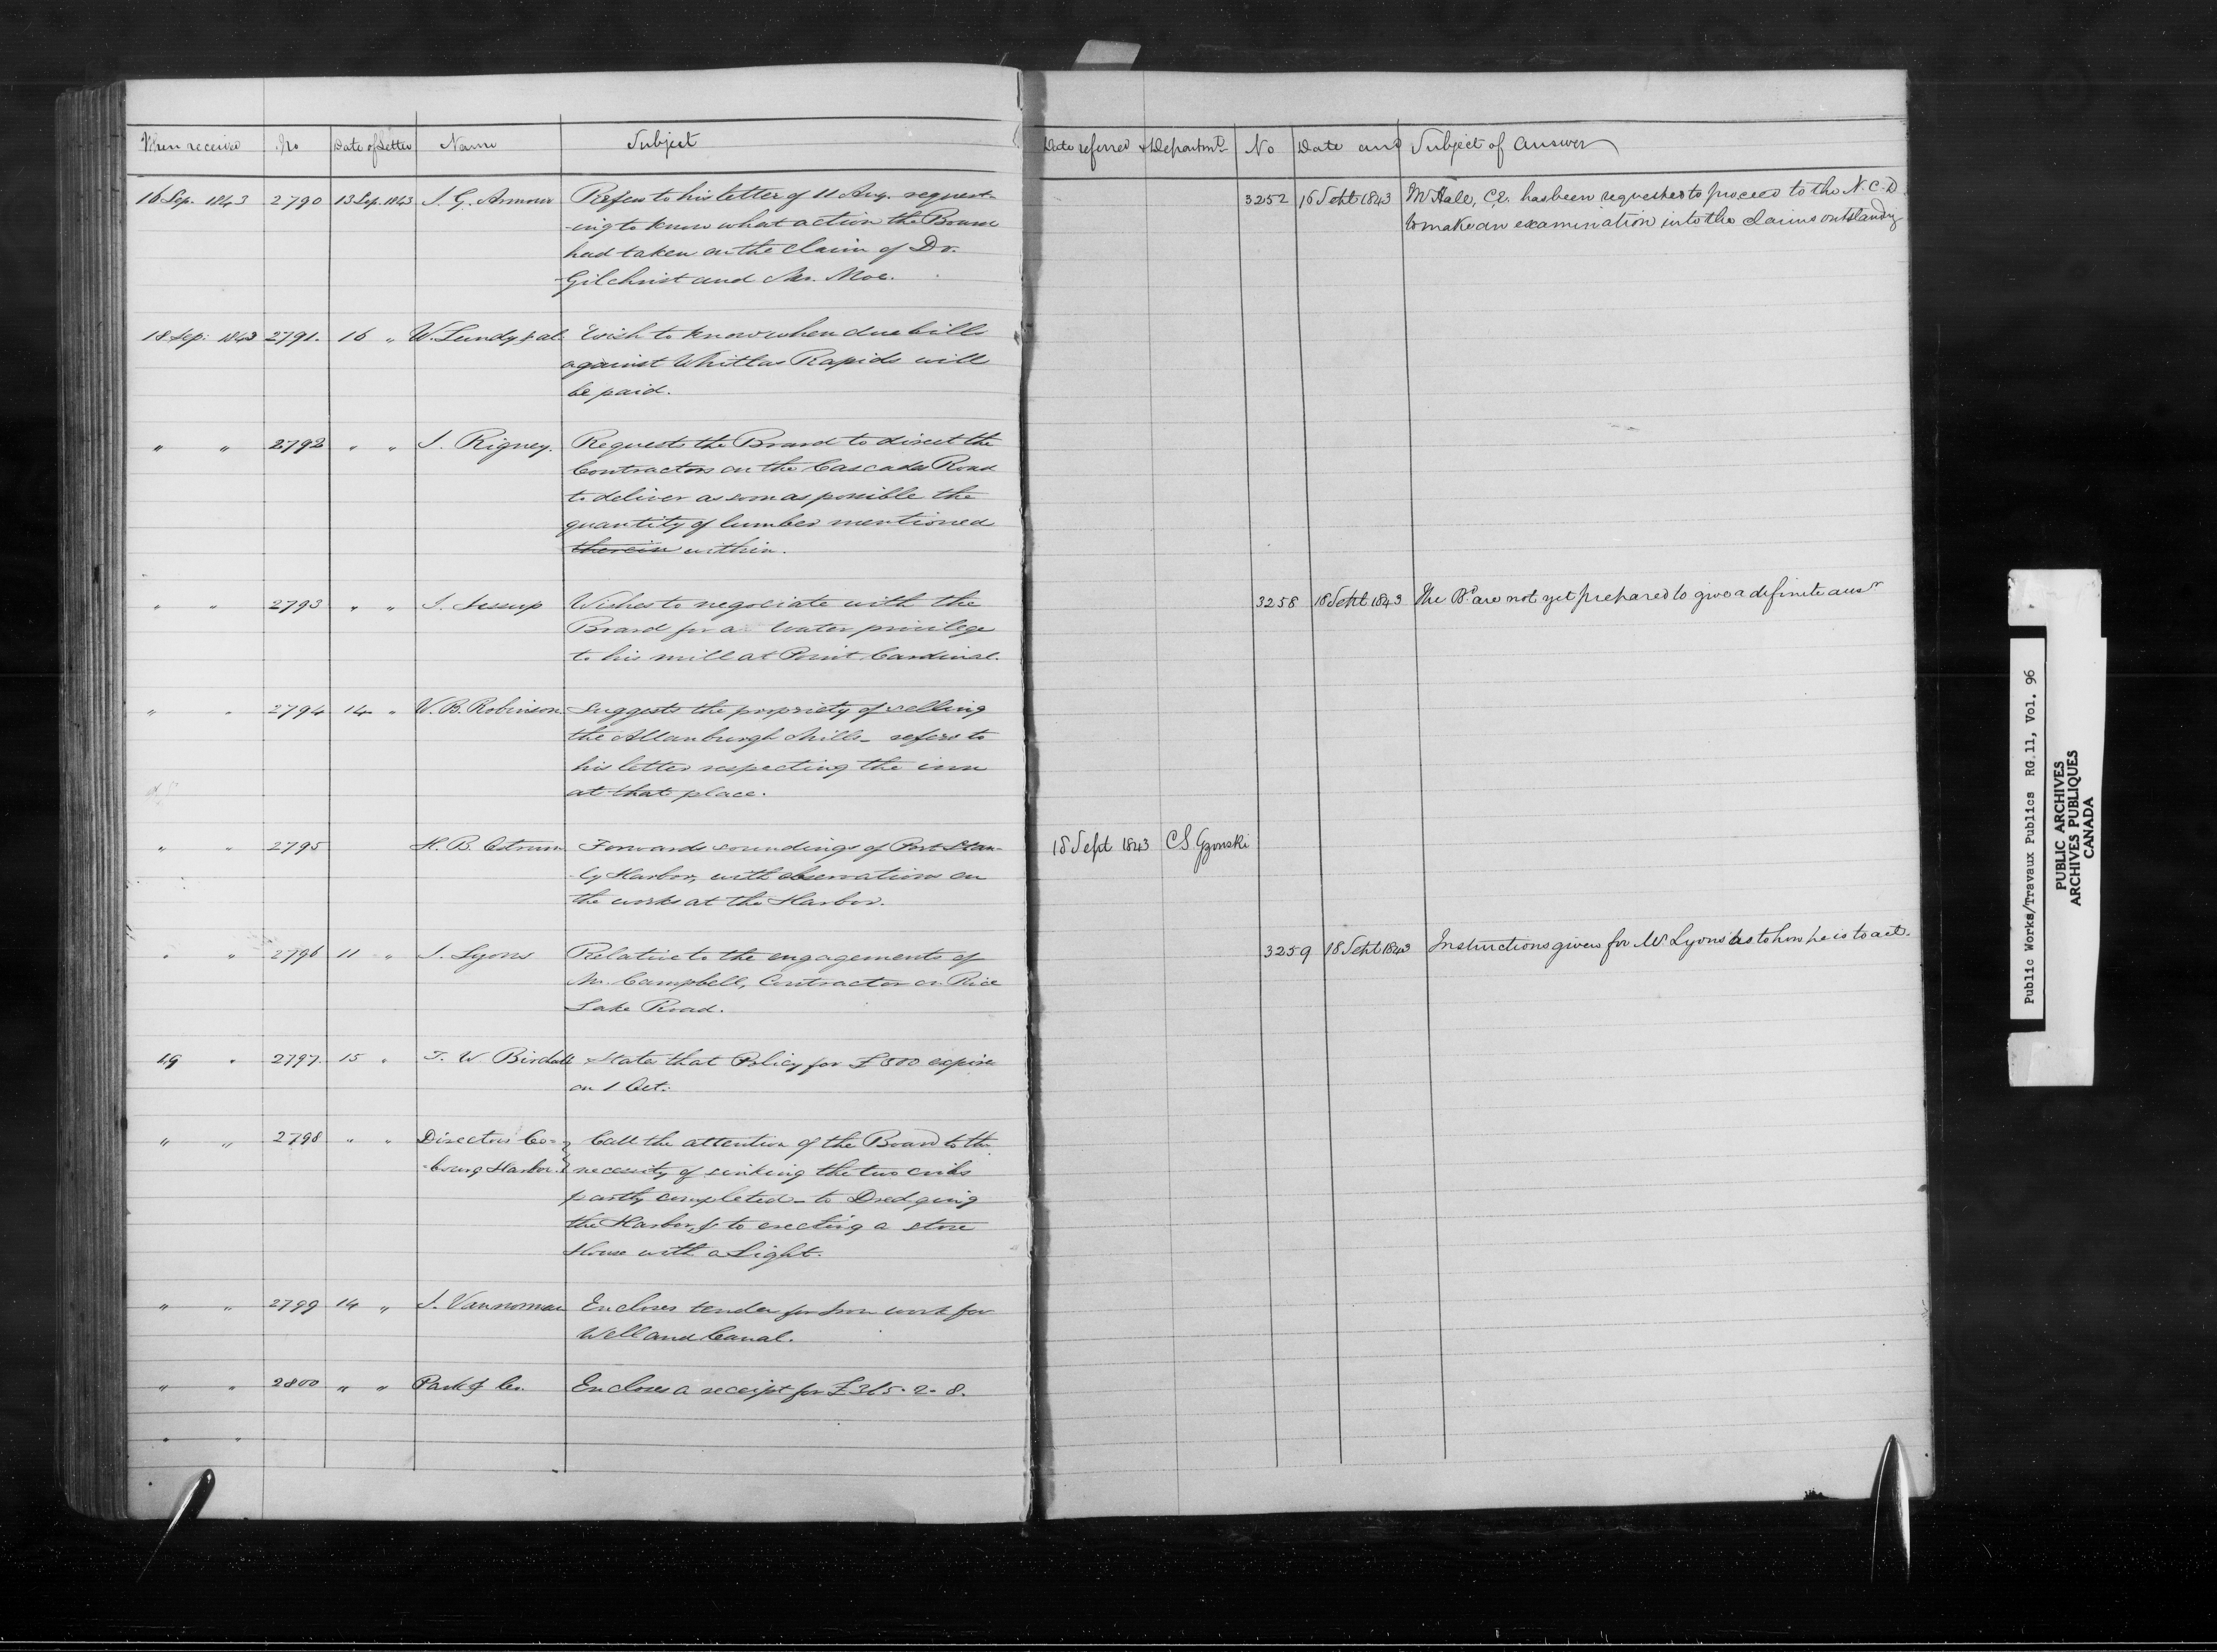 When received No Date of Letter Name Subject
16 Sep. 1843 2790 13 Sep. 1843 J. G. Armour Refers to his letter of 11 Aug. request-
-ing to know what action the Board
had taken on the claim of Dr.
Gilchrist and Mr. Moe.
18 Sep: 1843 2791. 16 " W. Lundy & al. Wish to know when due bills
against Whitlas Rapids will
be paid.
" " 2792 " " J. Rigney. Requests the Board to direct the
Contractors on the Cascades Road
to deliver as soon as possible the
quantity of lumber mentioned
therein within.
" " 2793 " " J. Jessup Wishes to negociate with the
Board for a Water privilege
to his mill at Point Cardinal.
" " 2794 14 " W. B. Robinson. Suggests the propriety of selling
the Allanburgh Mills - refers to
his letter respecting the inn
at that place.
" " 2795 H. B. Ostrum Forwards soundings of Port Stan-
-ly Harbor, with observations on
the works at the Harbor.
" " 2796 11 " J. Lyons Relative to the engagements of
Mr. Campbell, Contractor on Rice
Lake Road.
19 " 2797. 15 " T. W. Birdall States that Policy for £800 expires
on 1 Oct:
" " 2798 " " Directors Co- Call the attention of the Board to the
-bourg Harbor. necessity of sinking the two cribs
partly completed - to Dredging
the Harbor, & to erecting a store
House with a Light.
" " 2799 14 " J. Vannorman Encloses tender for Iron work for
Welland Canal.
" " 2800 " " Park & Co. Encloses a receipt for £315. 2. 8.
" "
Date referred & Departmt. No Date and Subject of Answer
3252 16 Sept 1843 Mr Hale, C.E. has been requested to proceed to the N.C.D.
to make an examination into the claims outstanding
3258 18 Sept 1843 The Bd. are not yet prepared to give a definite ansr
18 Sept 1843 C.S. Gzowski
3259 18 Sept 1843 Instructions given for Mr Lyons as to how he is to act.
Public Works/Travaux Publics RG.11, Vol. 96
PUBLIC ARCHIVES
ARCHIVES PUBLIQUES
CANADA